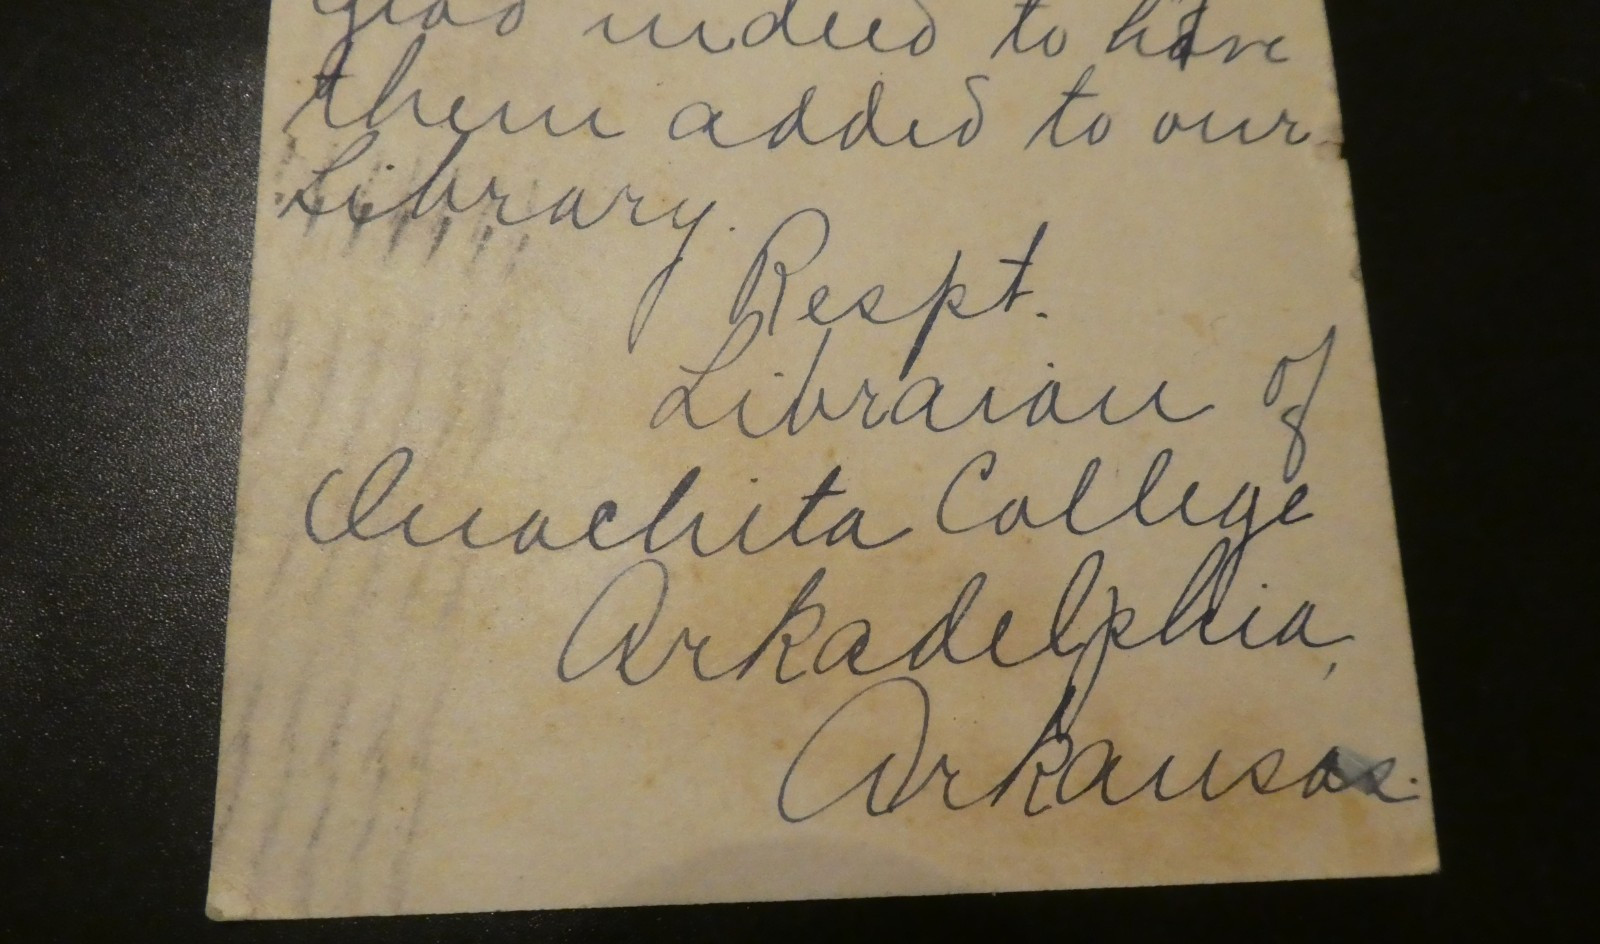 glad indeed to have
them added to our
Library.
Respt.
Libraian of
Ouachita College
Arkadelphia,
Arkansas.